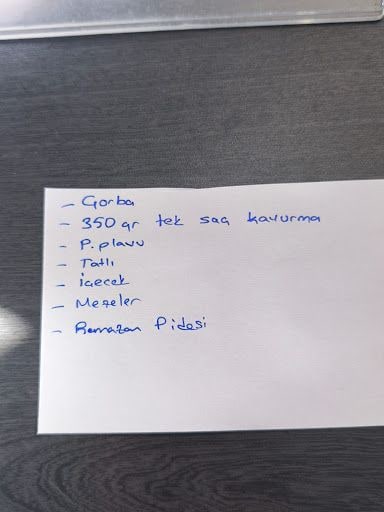 - Çorba
- 350 gr tek saç kavurma
- P. plavu
- Tatlı
- İçecek
- Mezeler
- Ramazan Pidesi